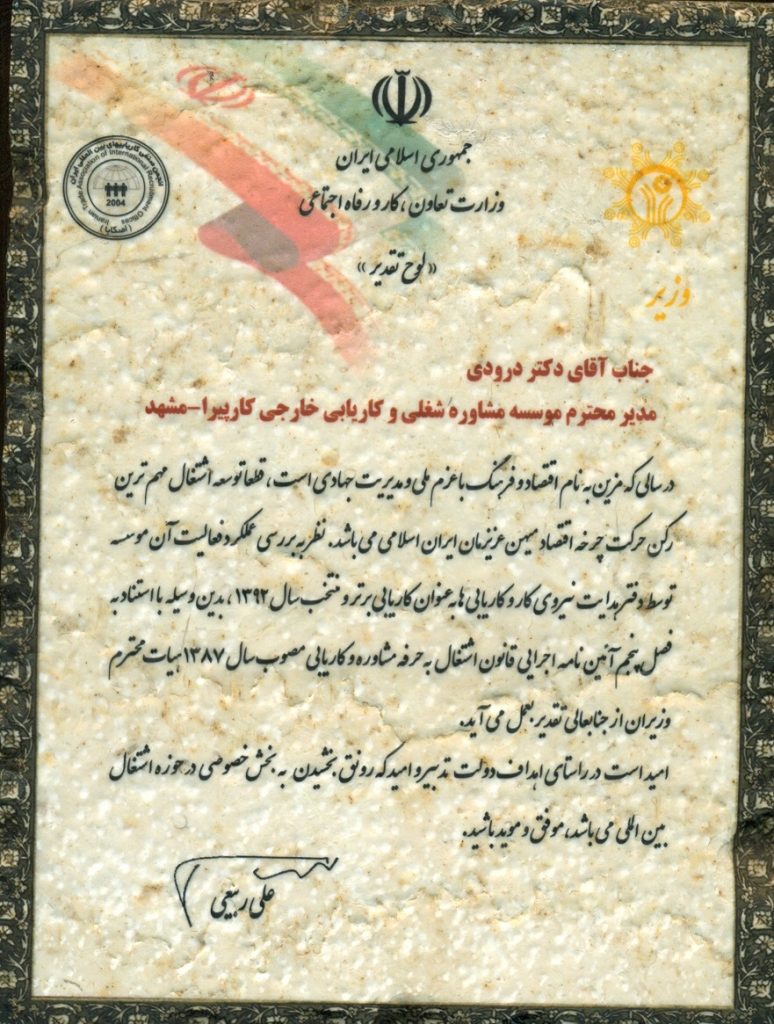 جمهوری اسلامی ایران
وزارت تعاون، کار و رفاه اجتماعی
«لوح تقدیر»
انجمن صنفی کاریابیهای بین المللی ایران
Iranian Trade Association of International Recruitment Offices
2004
(آصکابا)
وزیر
جناب آقای دکتر درودی
مدیر محترم موسسه مشاوره شغلی و کاریابی خارجی کارپیرا-مشهد
در سالی که مزین به نام اقتصاد و فرهنگ با عزم ملی و مدیریت جهادی است، قطعا توسعه اشتغال مهم ترین
رکن حرکت چرخه اقتصاد میهن عزیزمان ایران اسلامی می باشد. نظر به بررسی عملکرد فعالیت آن موسسه
توسط دفتر هدایت نیروی کار و کاریابی ها به عنوان کاریابی برتر و منتخب سال ۱۳۹۲، بدین وسیله با استناد به
فصل پنجم آئین نامه اجرایی قانون اشتغال به حرفه مشاوره و کاریابی مصوب سال ۱۳۸۷ هیات محترم
وزیران از جنابعالی تقدیر بعمل می آید.
امید است در راستای اهداف دولت تدبیر و امید که رونق بخشیدن به بخش خصوصی در حوزه اشتغال
بین اللملی می باشد، موفق و موید باشید.
علی ربیعی